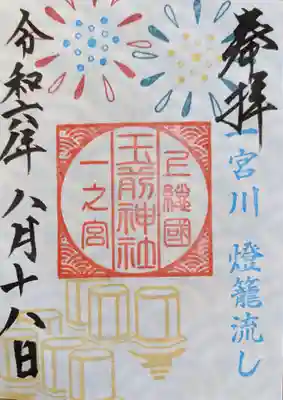 奉拝
一宮川 燈籠流し
上総國
玉前神社
一之宮
令和六年八月十八日